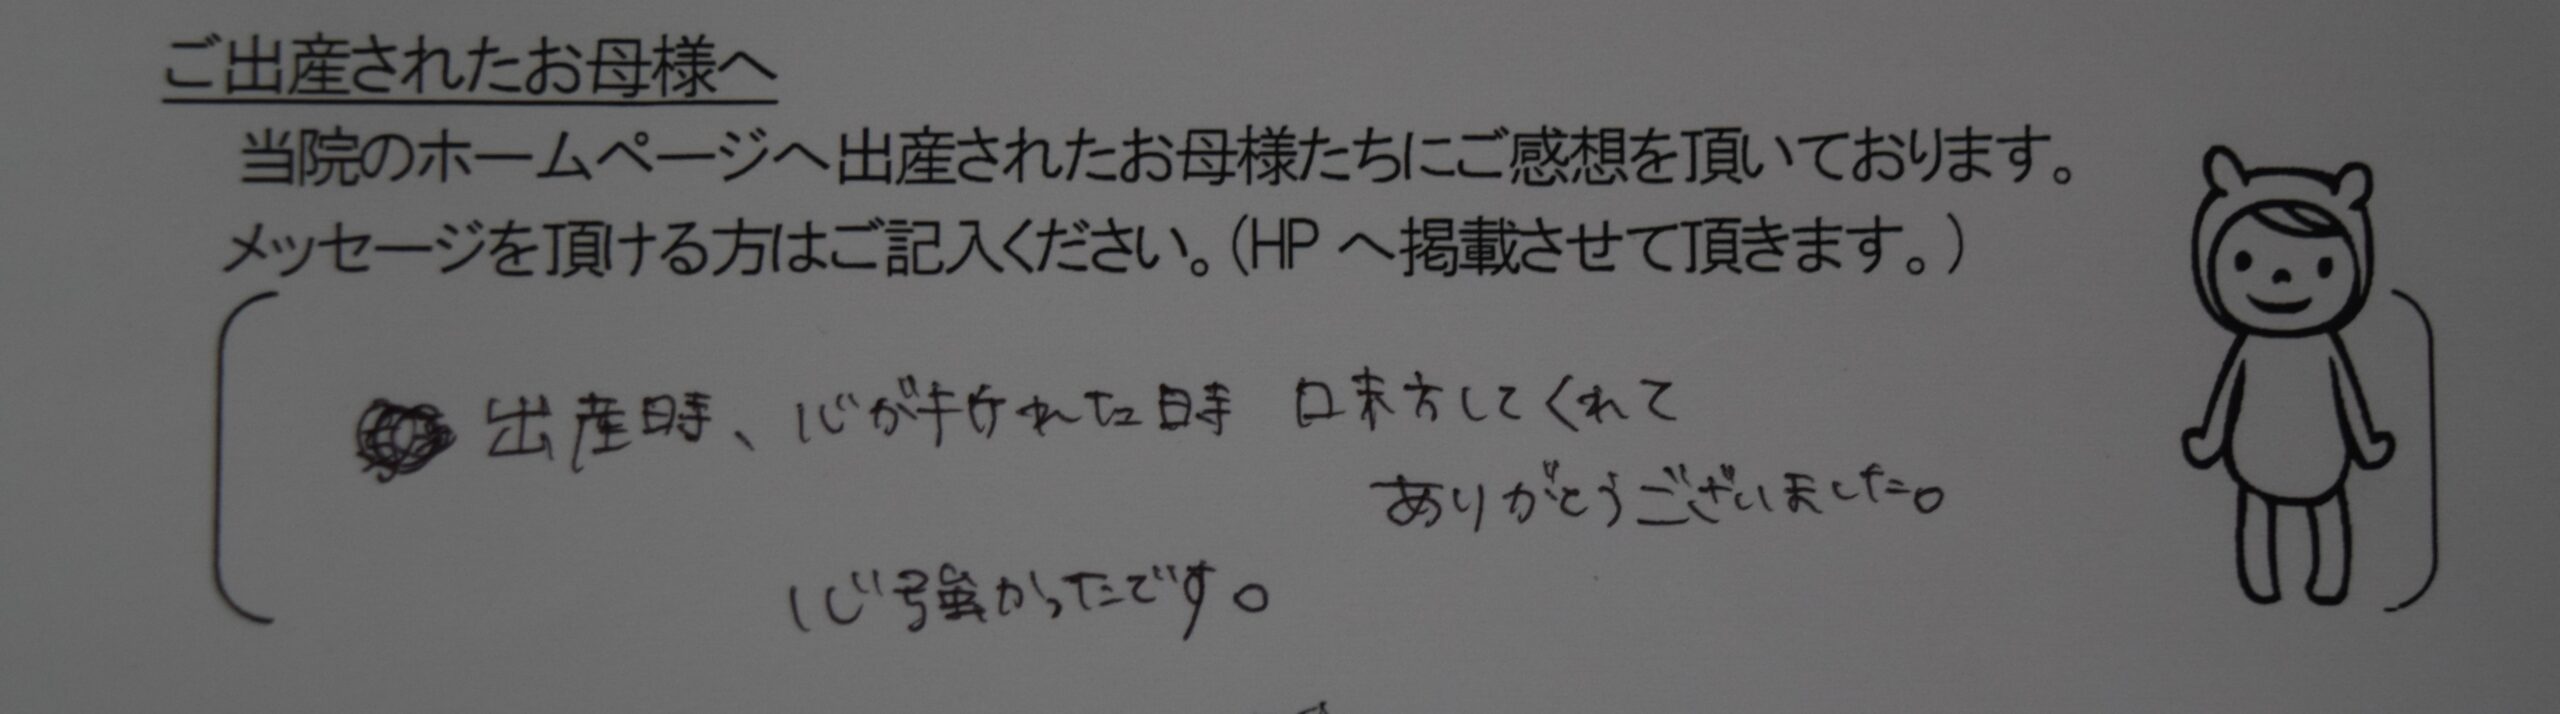 ご出産されたお母様へ
当院のホームページへ出産されたお母様たちにご感想を頂いております。
メッセージを頂ける方はご記入ください。（HP へ掲載させて頂きます。）
出産時、心が折れた時 味方してくれて
ありがとうございました。
心強かったです。